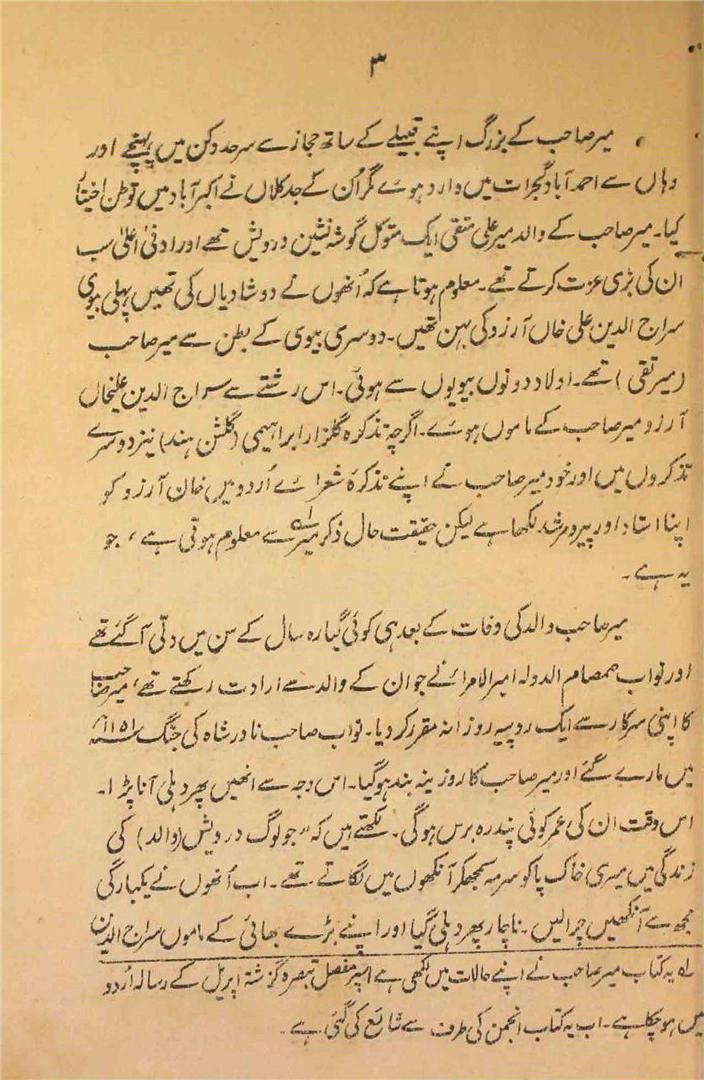 ۳
میر صاحب کے بزرگ اپنے قبیلے کے ساتھ حجاز سے سرحد دکن میں پہنچے اور
وہاں سے احمد آباد گجرات میں وارد ہوے مگر اُن کے جد کلاں نے اکبر آباد میں توطن اختیار
کیا۔ میر صاحب کے والد میر علی متقی ایک متوکل گوشہ نشین درویش تھے اور ادنیٰ اعلیٰ سب
ان کی بڑی عزت کرتے تھے۔ معلوم ہوتا ہے کہ اُنھوں نے دو شادیاں کی تھیں پہلی بیوی
سراج الدین علی خاں آرزو کی بہن تھیں۔ دوسری بیوی کے بطن سے میر صاحب
(میر تقی) تھے۔ اولاد دونوں بیویوں سے ہوئی۔ اس رشتے سے سراج الدین علیخاں
آرزو میر صاحب کے ماموں ہوے۔ اگرچہ تذکرہ گلزار ابراہیمی (گلشن ہند) نیز دوسرے
تذکروں میں اور خود میر صاحب نے اپنے تذکرۂ شعراے اُردو میں خان آرزو کو
اپنا استاد اور پیر و مرشد لکھا ہے لیکن حقیقت حال ذکر میر؎۱ سے معلوم ہوتی ہے، جو
یہ ہے۔
میر صاحب والد کی وفات کے بعد ہی کوئی گیارہ سال کے سن میں دلّی آگئے تھے
اور نواب صمصام الدولہ امیر الامرا نے جو ان کے والد سے ارادت رکھتے تھے، میر صاحب
کا اپنی سرکار سے ایک روپیہ روزانہ مقرر کر دیا۔ نواب صاحب نادر شاہ کی جنگ ۱۱۵۱ھ
میں مارے گئے اور میر صاحب کا روزینہ بند ہو گیا۔ اس وجہ سے انھیں پھر دہلی آنا پڑا۔
اس وقت ان کی عمر کوئی پندرہ برس ہو گی۔ لکھتے ہیں کہ "جو لوگ درویش (والد) کی
زندگی میں میری خاک پا کو سرمہ سمجھکر آنکھوں میں لگاتے تھے۔ اب اُنھوں نے یکبارگی
مجھ سے آنکھیں چرالیں۔ ناچار پھر دہلی گیا اور اپنے بڑے بھائی کے ماموں سراج الدین
؎۱ یہ کتاب میر صاحب نے اپنے حالات میں لکھی ہے اسپر مفصل تبصرہ گزشتہ اپریل کے رسالہ اُردو
میں ہو چکا ہے۔ اب یہ کتاب انجمن کی طرف سے شائع کی گئی ہے۔